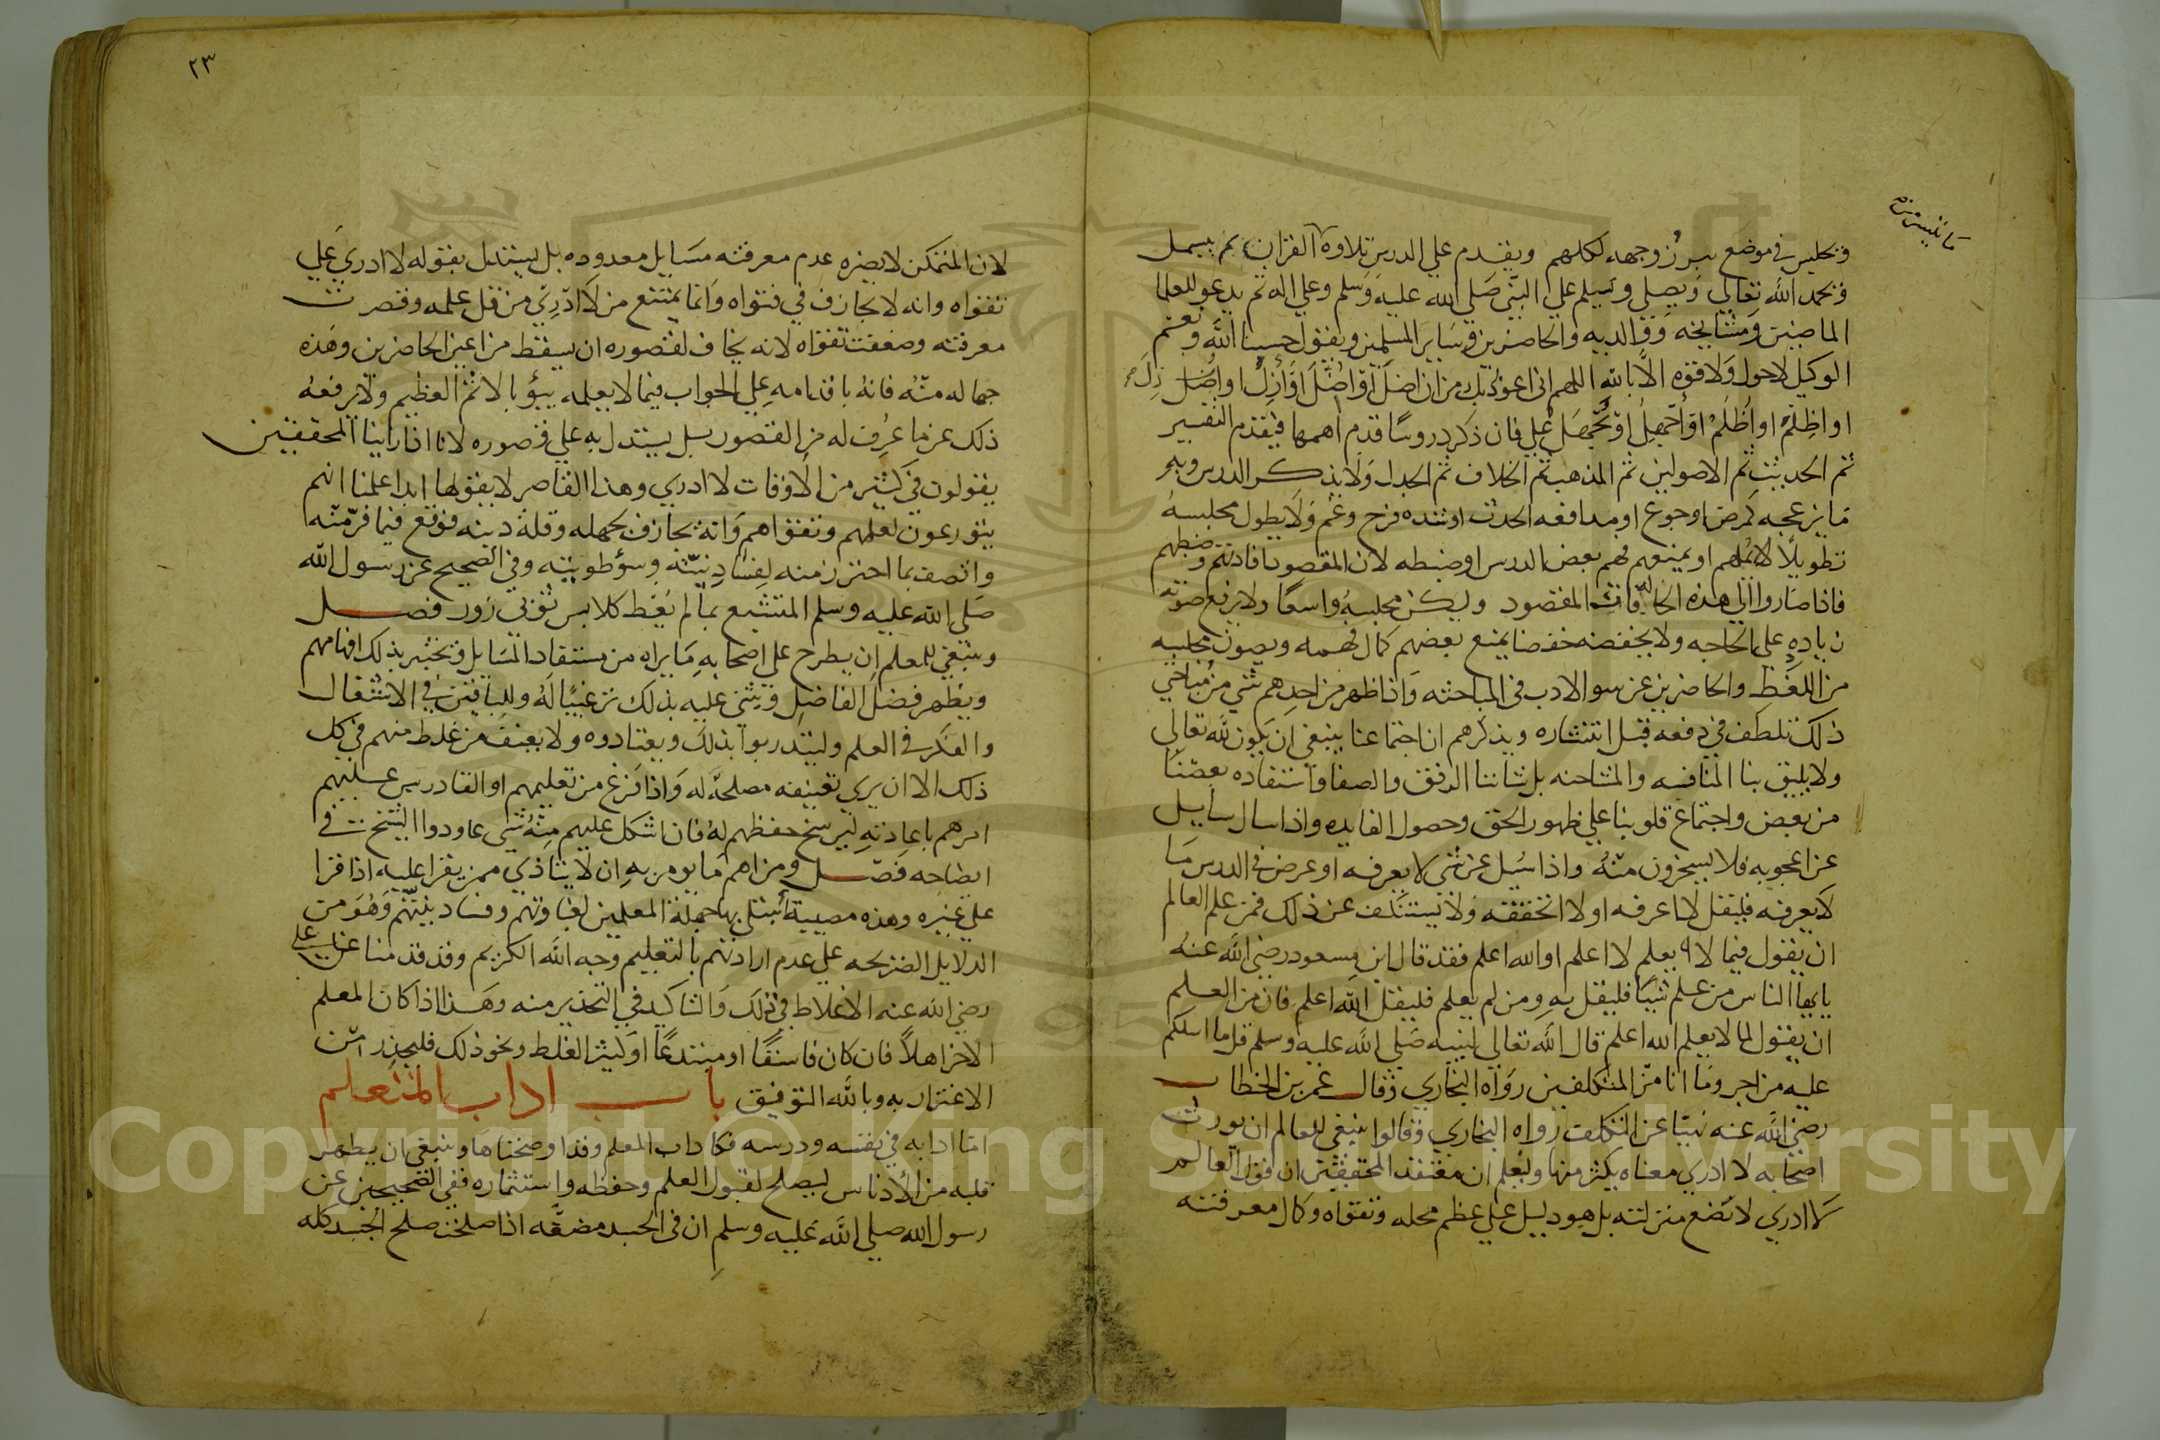 ويجلس في موضع يبرز وجهه لكلهم ويقدم علي الدرس تلاوة القران ثم يبسمل
ويحمد الله تعالي ويصلي ويسلم علي النبي صلي الله عليه وسلم وعلي اله ثم يدعو للعلما
الماضين ومشايخه ووالديه والحاضرين وساير المسلمين ويقول حسبنا الله ونعم
الوكيل لا حول ولا قوة الا بالله اللهم اني اعوذ بك من ان اضل او اضل او ازل او
او اظلم او اظلم او اجهل او يجهل علي فان ذكر دروسا قدم اهمها فيقدم التفسير
ثم الحديث ثم الاصولين ثم المذهب ثم الخلاف ثم الجدل ولا يذكر الدرس وبه
ما يزعجه كمرض او جوع او مدافعه الحدث او شده فرح وغم ولا يطول مجلسه
تطويلا لا يملهم او يمنعهم فهم بعض الدرس او ضبطه لان المقصود افادتهم وضبطهم
فاذا صاروا الي هذه الحاله فات المقصود وليكن مجلسه واسعا ولا يرفع صوته
زياده علي الحاجه ولا يخفضه خفضا يمنع بعضهم كمال فهمه ويصون مجلسه
من اللغط والحاضرين عن سو الادب في المباحثه واذا ظهر من احدهم شي من مبادي
ذلك تلطف في دفعه قبل انتشاره ويذكرهم ان اجتماعنا ينبغي ان يكون لله تعالي
ولا يليق بنا المنافسه والمشاحنه بل شاننا الرفق والصفا واستفاده بعضنا
من بعض واجتماع قلوبنا علي ظهور الحق وحصول الفايده واذا سال سايل
عن اعجوبه فلا يسخرون منه واذا سيل عن شي لا يعرفه او عرض في الدرس ما
لا يعرفه فليقل لا اعرفه او لا اتحققه ولا يستنكف عن ذلك فمن علم العالم
ان يقول فيما لا يعلم لا اعلم او الله اعلم فقد قال ابن مسعود رضي الله عنه
يايها الناس من علم شيا فليقل به ومن لم يعلم فليقل الله اعلم فان من العلم
ان يقول لما لا يعلم الله اعلم قال الله تعالي لنبيه صلي الله عليه وسلم قل ما اسلكم
عليه من اجر وما انا من المتكلفين رواه البخاري وقال عمر بن الخطاب
رضي الله عنه نهينا عن التكلف رواه البخاري وقالوا ينبغي للعالم ان يورث
اصحابه لا ادري معناه يكثر منها وليعلم ان معتقد المحققين ان قول العالم
لا ادري لا تضع منزلته بل هو دليل علي عظم محله وتقواه وكمال معرفته
٢٣
لان المتمكن لا يضره عدم معرفته مسايل معدوده بل يستدل بقوله لا ادري علي
تقواه وانه لا يجازف في فتواه وانما يمتنع من لا ادري من قل علمه وقصرت
معرفته وضعفت تقواه لانه يخاف لقصوره ان يسقط من اعين الحاضرين وهذه
جهاله منه فانه باقدامه علي الجواب فيما لا يعلمه يبؤ بالاثم العظيم ولا يرفعه
ذلك عن ما عرف له من القصور بل يستدل به علي قصوره لانا اذا راينا المحققين
يقولون في كثير من الاوقات لا ادري وهذا القاصر لا يقولها ابدا علمنا انهم
يتورعون لعلمهم وتقواهم وانه يجازف لجهله وقلة دينه فوقع فيما فر منه
واتصف بما احترز منه لفساد نيته وسؤ طويته وفي الصحيح عن رسول الله
صلي الله عليه وسلم المتشبع بما لم يعط كلابس ثوبي زور فصل
وينبغي للمعلم ان يطرح علي اصحابه ما يراه من مستفاد المسايل ويختبر بذلك افهامهم
ويظهر فضل الفاضل ويثني عليه بذلك ترغيبا له وللباقين في الاشتغال
والفكر في العلم وليتدربوا بذلك ويعتادوه ولا يعنف من غلط منهم في كل
ذلك الا ان يري تعنيفه مصلحة له واذا فرغ من تعليمهم او القا درس عليهم
امرهم باعادته ليرسخ حفظهم له فان اشكل عليهم منه شي عاودوا الشيخ في
ايضاحه فصل ومن اهم ما يومر به ان لا يتاذي ممن يقرا عليه اذا قرا
علي غيره وهذه مصيبة ابتلي بها جهلة المعلمين لغباوتهم وفساد نيتهم وهو من
الدلايل الصريحه علي عدم ارادتهم بالتعليم وجه الله الكريم وقد قدمنا عن علي
رضي الله عنه الاغلاظ في ذلك والتاكيد في التحذير منه وهذا اذا كان المعلم
الاخر اهلا فان كان فاسقا او مبتدعا او كثير الغلط ونحو ذلك فليحذر من
الاغترار به وبالله التوفيق باب اداب المتعلم
اما ادابه في نفسه ودرسه فكاداب المعلم وقد اوضحناها وينبغي ان يطهر
قلبه من الادناس ليصلح لقبول العلم وحفظه واستثماره ففي الصحيحين عن
رسول الله صلي الله عليه وسلم ان في الجسد مضغه اذا صلحت صلح الجسد كله
Copyright © King Saud University